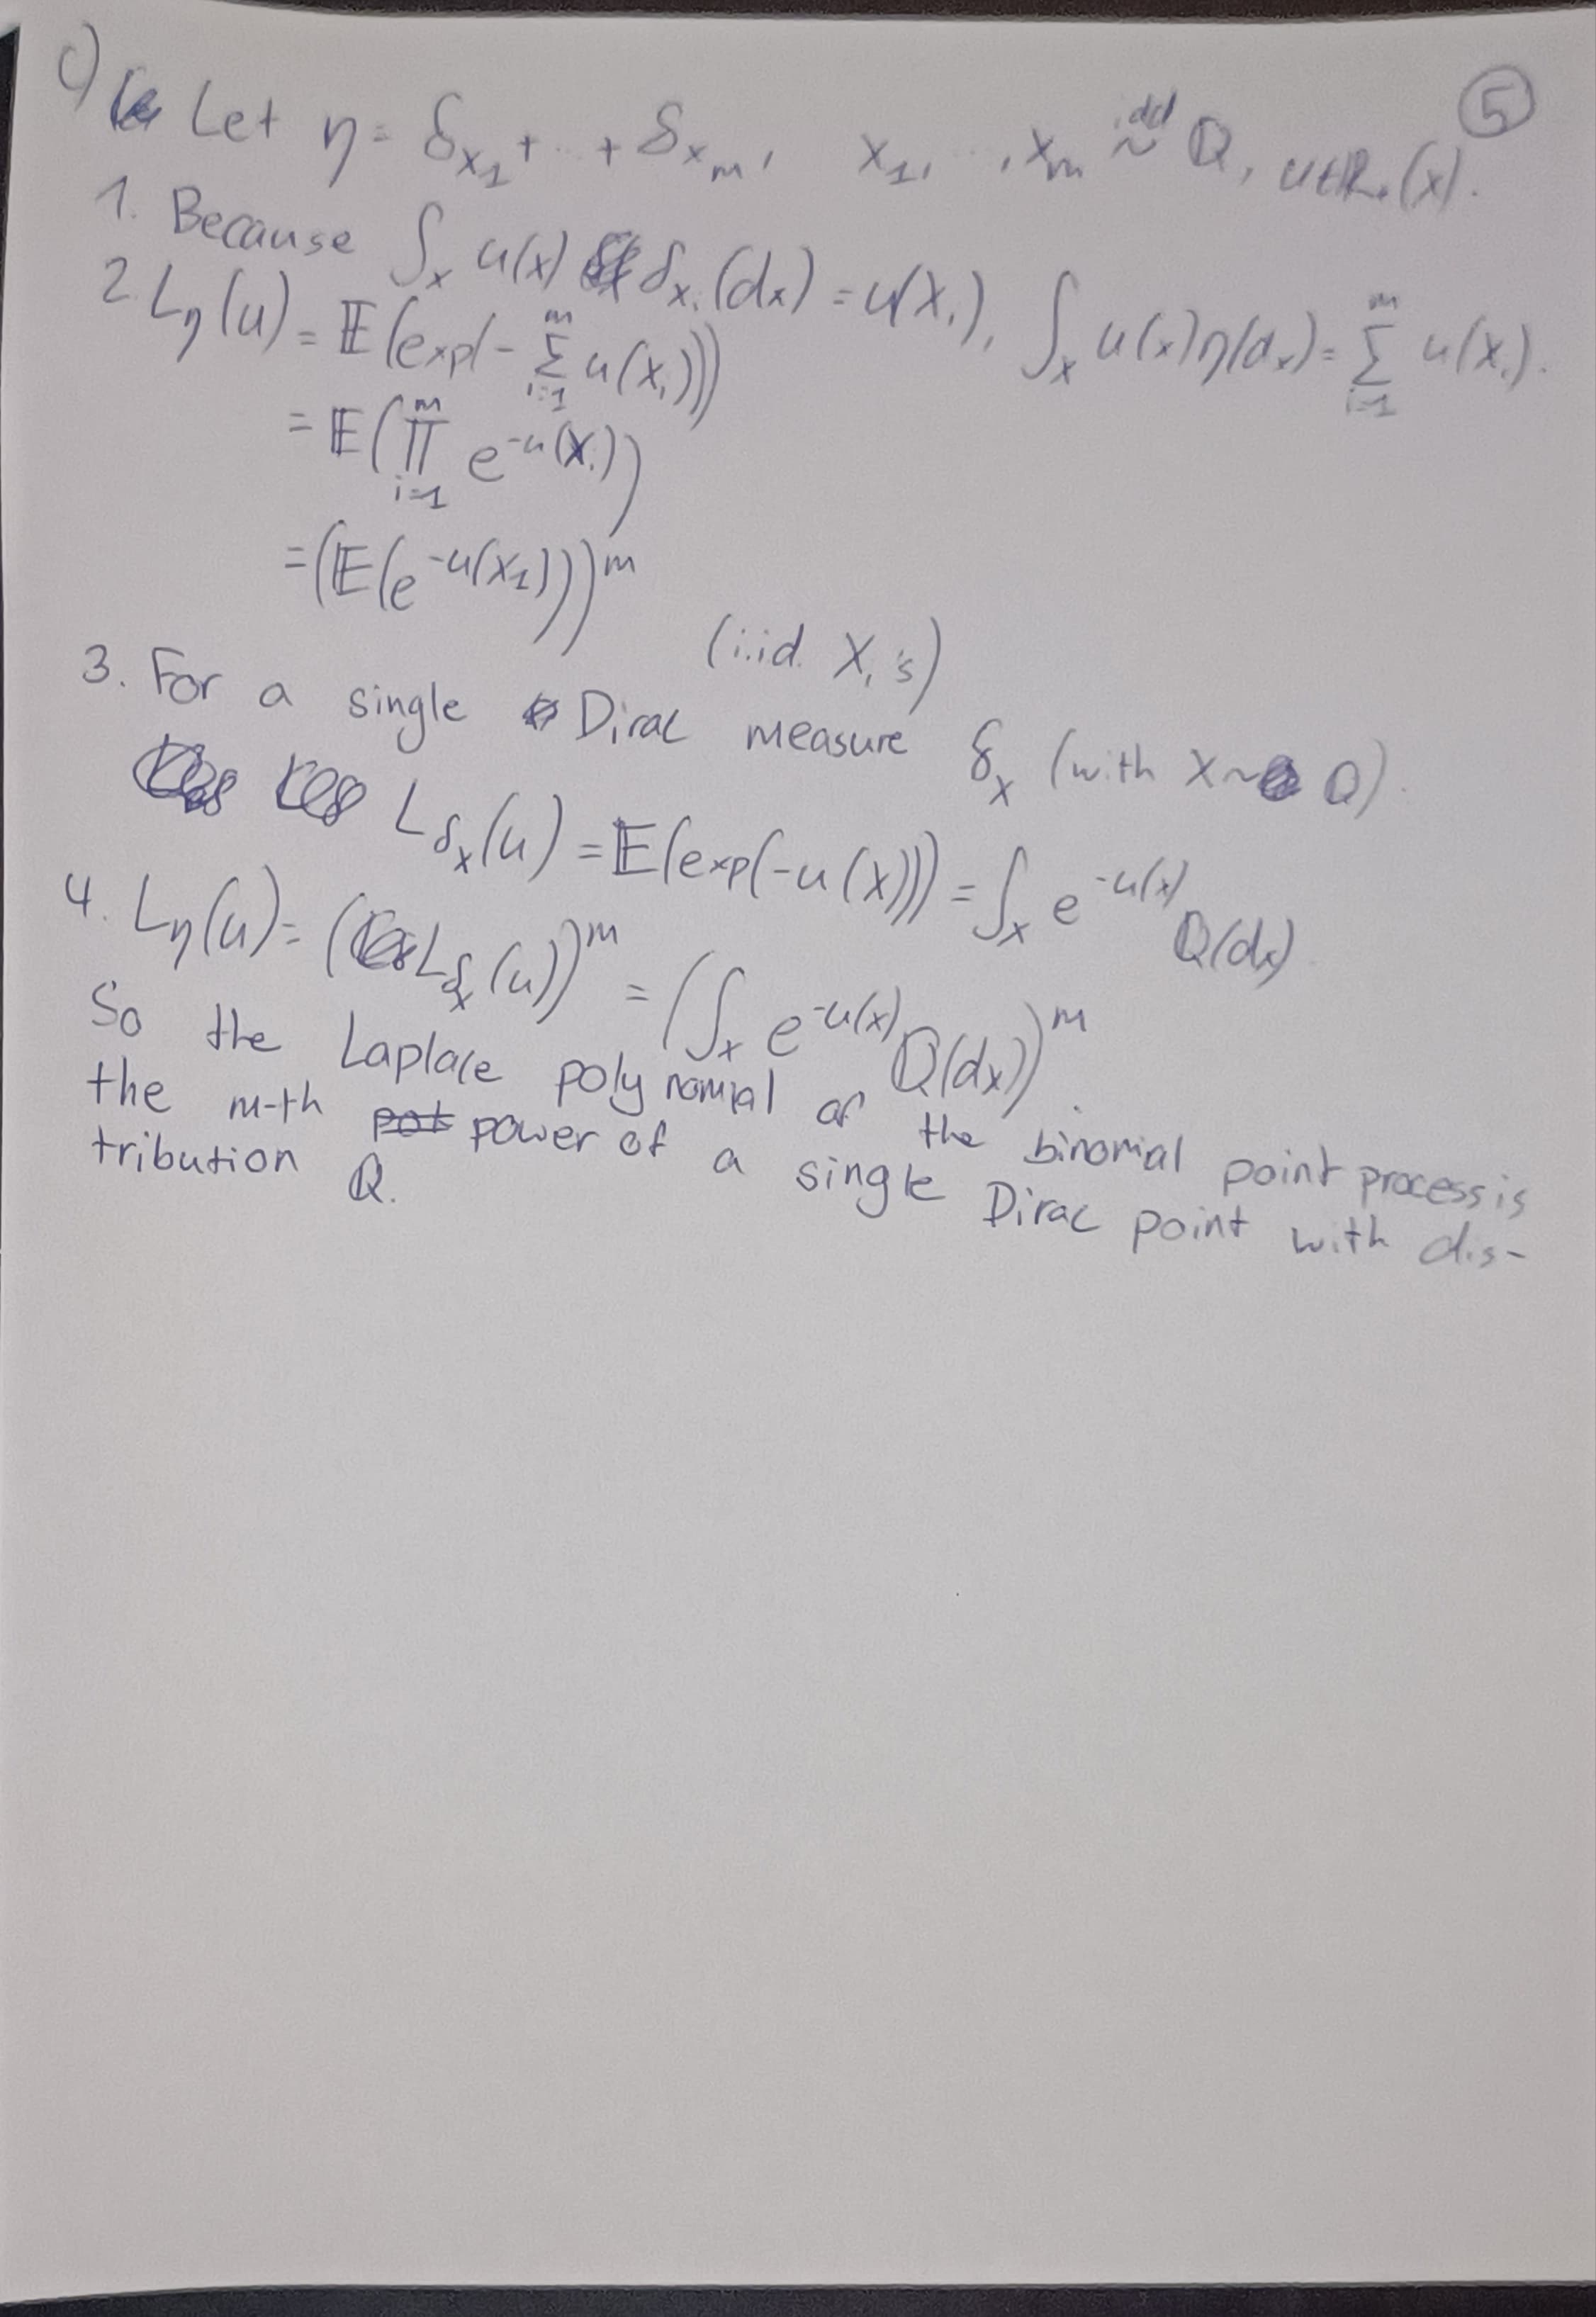 c) Let η = δ_{X_1} + ... + δ_{X_m}, X_1, ..., X_m iid ~ Q, u ∈ ℝ_+(X). ⑤
1. Because ∫_X u(x) δ_{X_i}(dx) = u(X_i), ∫_X u(x) η(dx) = Σ_{i=1}^m u(X_i).
2. L_η(u) = 𝔼(exp(- Σ_{i=1}^m u(X_i)))
= 𝔼(∏_{i=1}^m e^{-u(X_i)})
= (𝔼(e^{-u(X_1)}))^m
(i.i.d. X_i's)
3. For a single Dirac measure δ_X (with X ~ Q).
L_{δ_X}(u) = 𝔼(exp(-u(X))) = ∫_X e^{-u(x)} Q(dx).
4. L_η(u) = (L_{δ_X}(u))^m = (∫_X e^{-u(x)} Q(dx))^m.
So the Laplace polynomial of the binomial point process is
the m-th power of a single Dirac point with dis-
tribution Q.